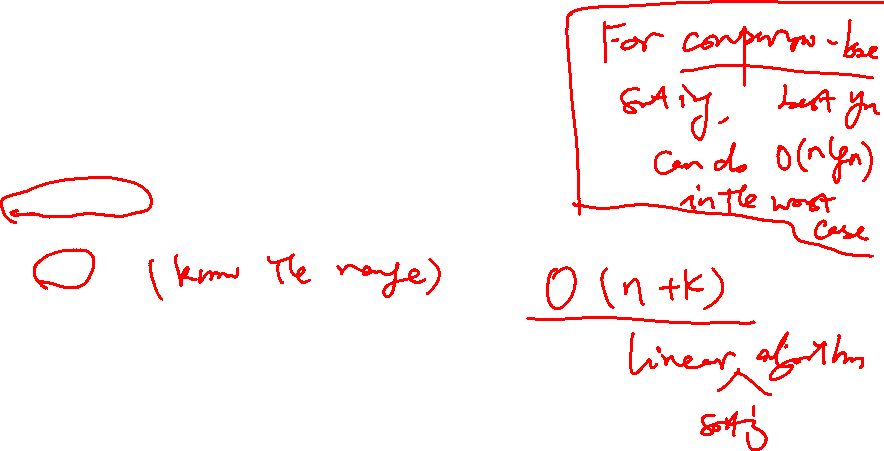 For comparison-base
sorting, best you
can do O(n lg n)
in the worst
case
(know the range)
O(n+k)
linear algorithm
sorting